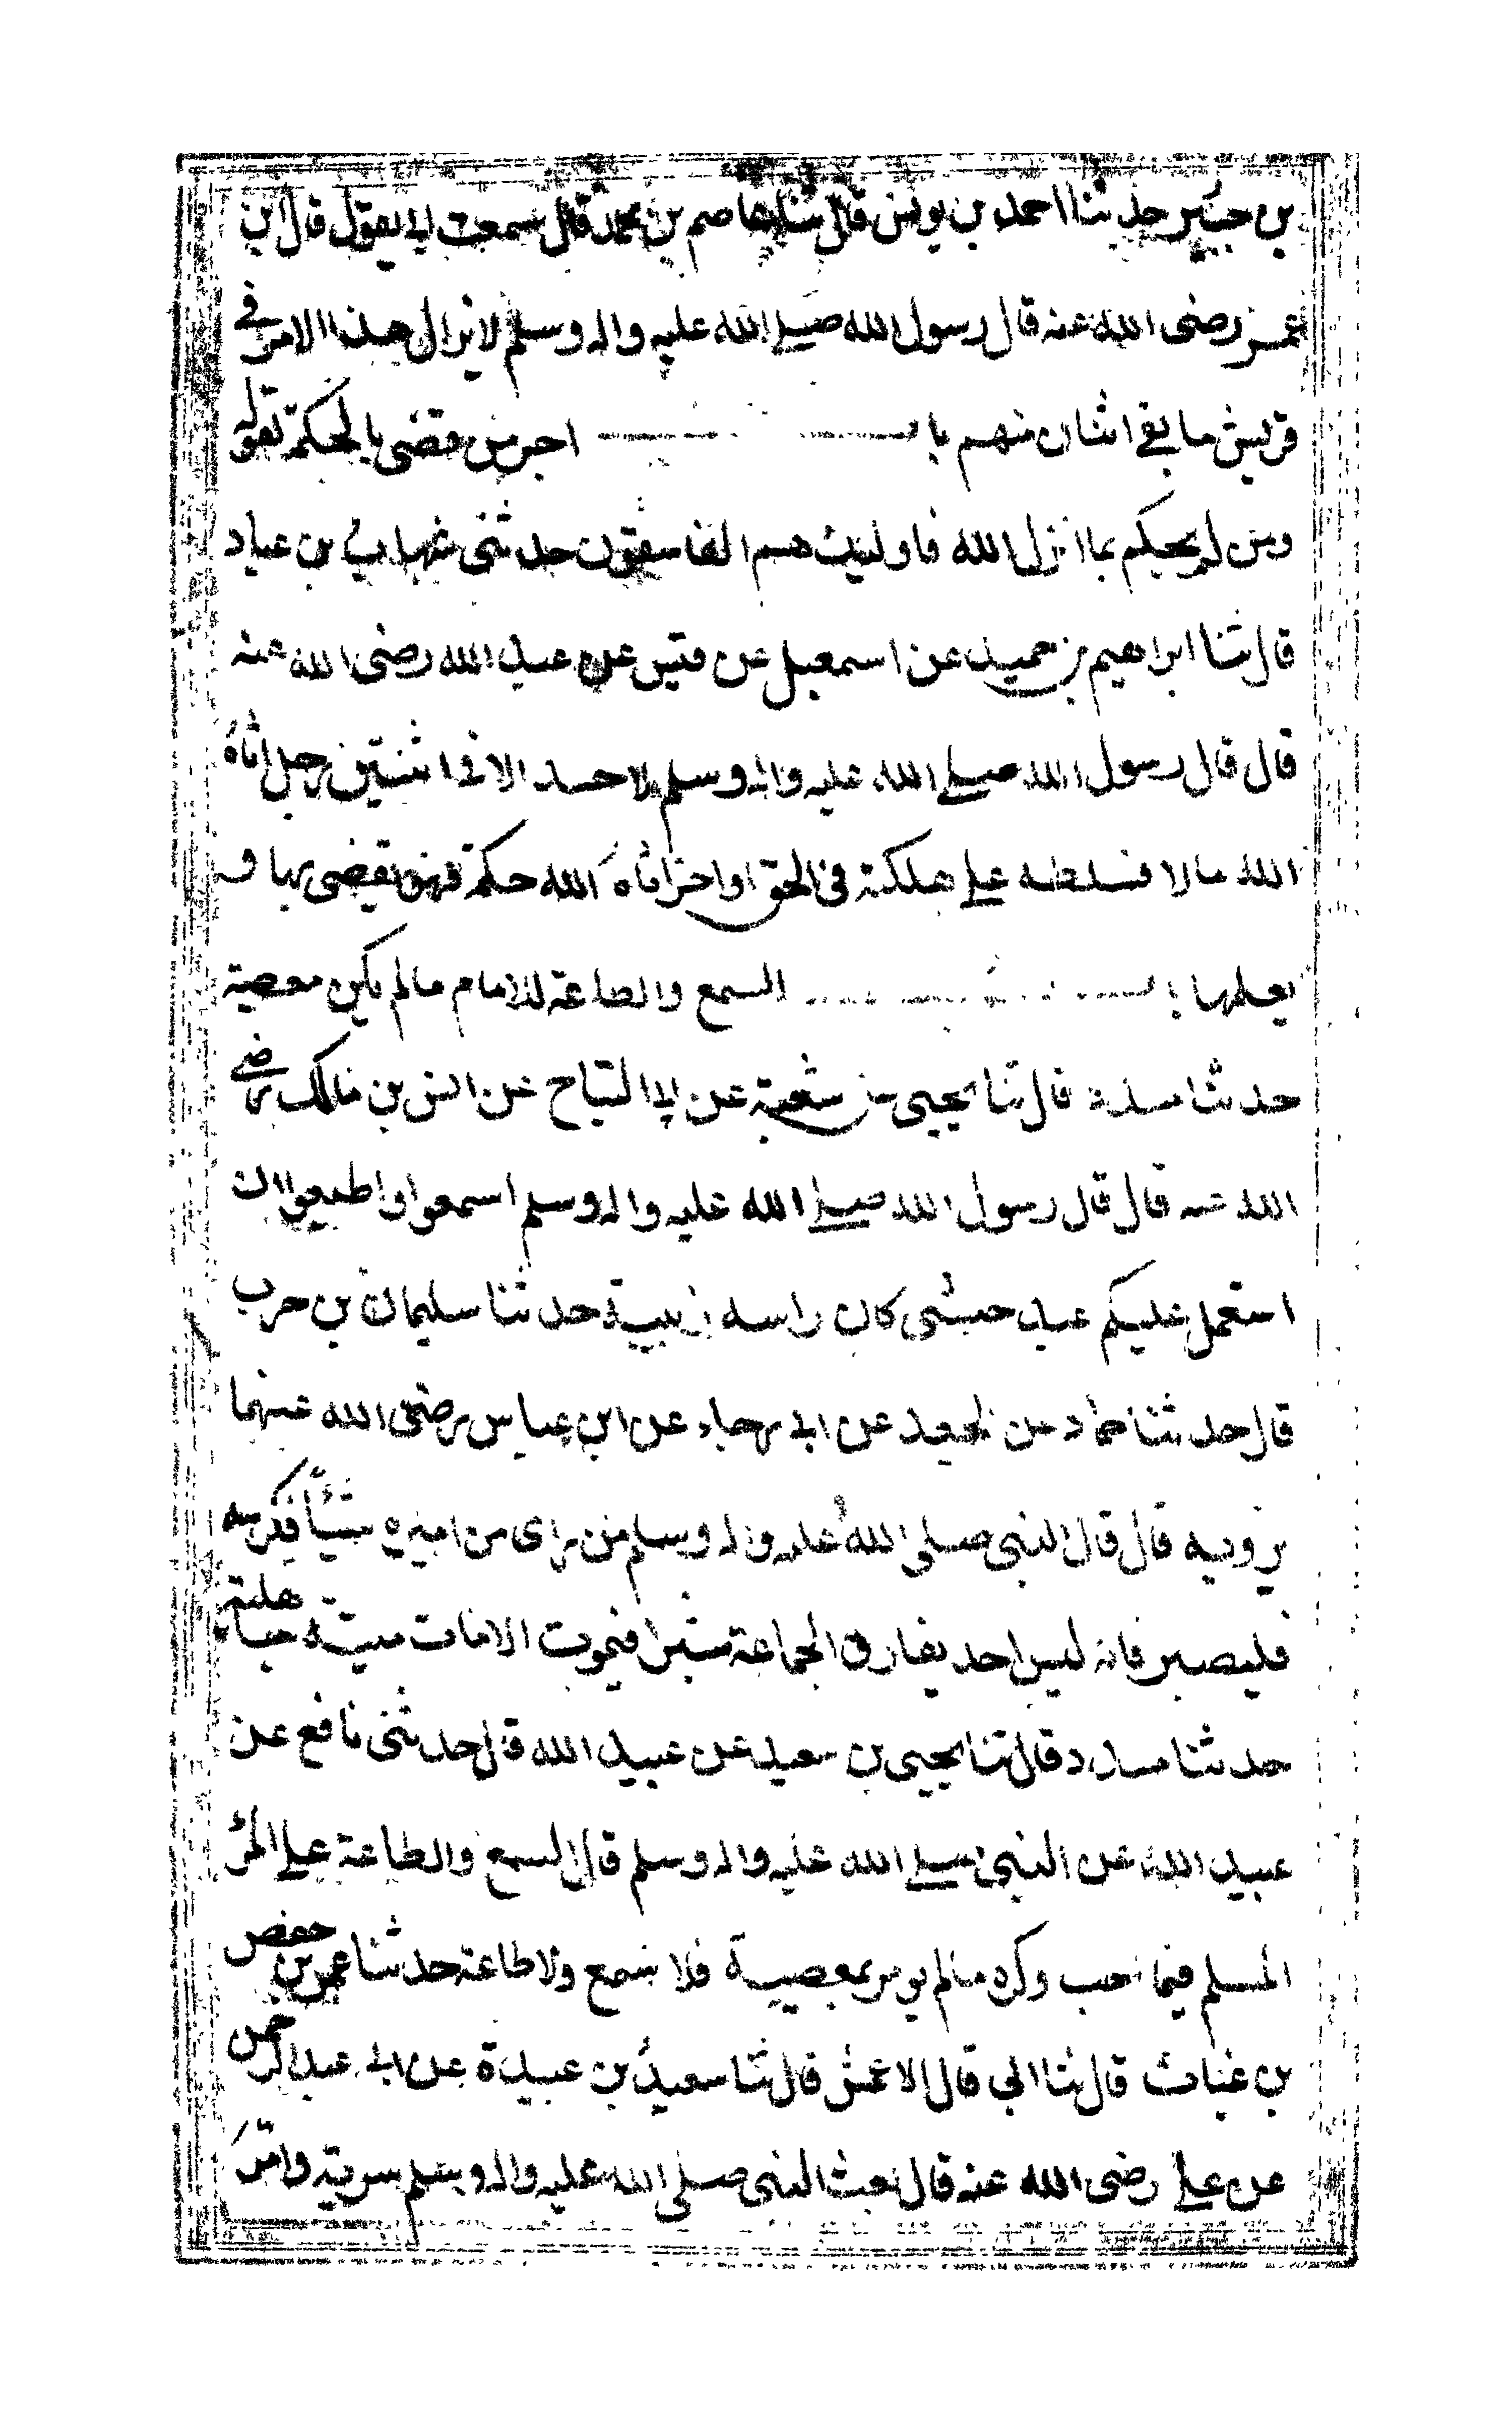 بن جبير حدثنا احمد بن يونس قال ثنا عاصم بن محمد قال سمعت ابي يقول قال ابن
عمر رضى الله عنه قال رسول الله صلے الله عليه واله وسلم لا يزال هذا الامر فى
قريش ما بقے اثنان منهم باب اجر من قضى بالحكمة لقوله
ومن لم يحكم بما انزل الله فاولئك هم الفاسقون حدثنى شهاب بن عباد
قال ثنا ابراهيم بن حميد عن اسمعيل عن قيس عن عبد الله رضى الله عنه
قال قال رسول الله صلے الله عليه واله وسلم لا حسد الا فى اثنتين رجل اتاه
الله مالا فسلطه علے هلكته فى الحق او اخر اتاه الله حكمة فهو يقضى بها و
يعلمها باب السمع والطاعة للامام مالم يكن معصية
حدثنا مسدد قال ثنا يحيى عن شعبة عن ابى التياح عن انس بن مالك رضے
الله عنه قال قال رسول الله صلے الله عليه واله وسلم اسمعوا واطيعوا ان
استعمل عليكم عبد حبشى كان راسه زبيبة حدثنا سليمان بن حرب
قال حدثنا حماد عن الجعد عن ابى رجاء عن ابن عباس رضى الله عنهما
يرويه قال قال النبى صلى الله عليه واله وسلم من راى من اميره شيئا فكرهه
فليصبر فانه ليس احد يفارق الجماعة شبرا فيموت الا مات ميتة جاهلية
حدثنا مسدد قال ثنا يحيى بن سعيد عن عبيد الله قال حدثنى نافع عن
عبيد الله عن النبى صلے الله عليه واله وسلم قال السمع والطاعة علے المرء
المسلم فيما احب وكره مالم يومر بمعصية فلا سمع ولا طاعة حدثنا عمر بن حفص
بن غياث قال ثنا ابي قال الاعمش قال ثنا سعيد بن عبيدة عن ابى عبد الرحمن
عن علے رضى الله عنه قال بعث النبى صلى الله عليه واله وسلم سرية وامر